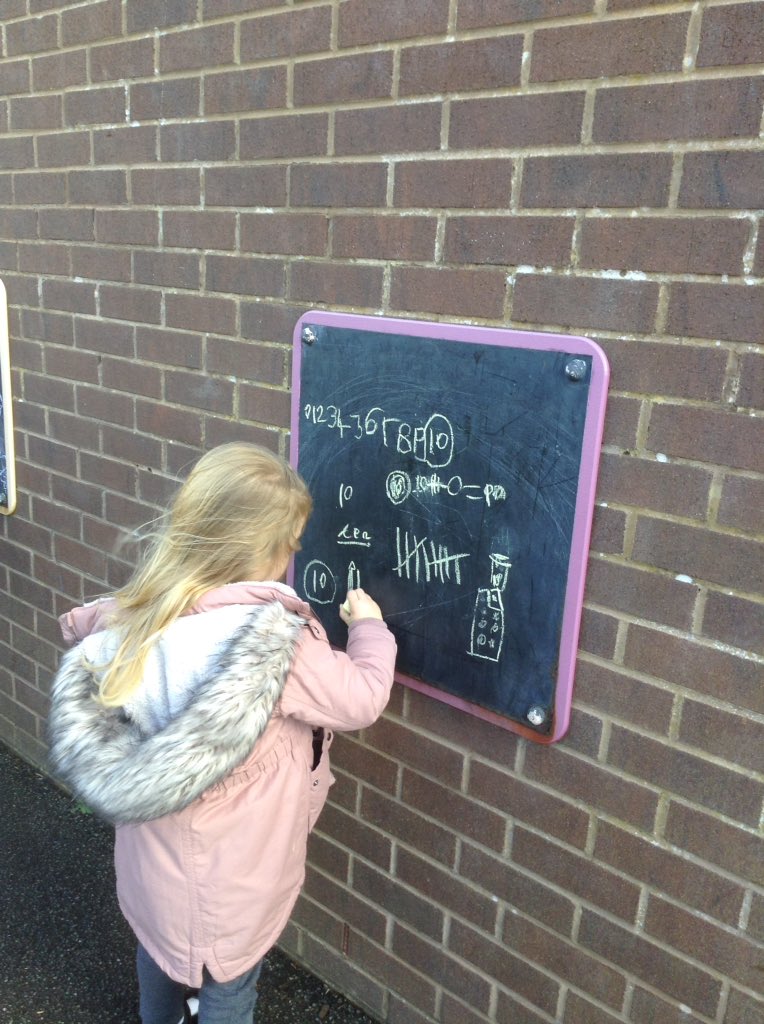 012345678910
10 10+0=10
ten
10